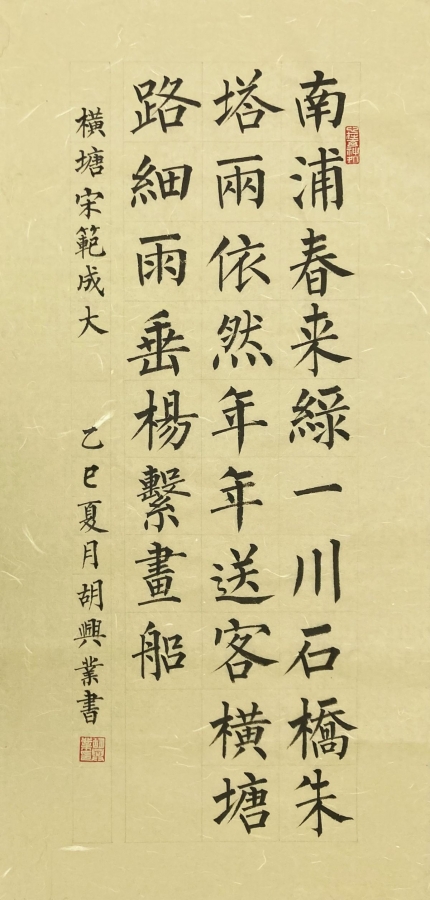 南浦春来綠一川石橋朱
塔兩依然年年送客橫塘
路細雨垂楊繫畫船
橫塘宋範成大 乙巳夏月胡興業書